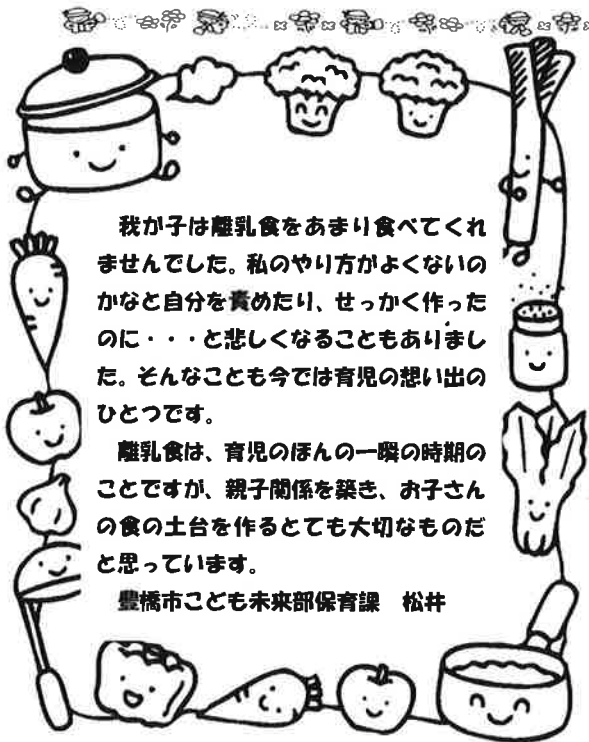 我が子は離乳食をあまり食べてくれ
ませんでした。私のやり方がよくないの
かなと自分を責めたり、せっかく作った
のに・・・と悲しくなることもありまし
た。そんなことも今では育児の想い出の
ひとつです。
離乳食は、育児のほんの一瞬の時期の
ことですが、親子関係を築き、お子さん
の食の土台を作るとても大切なものだ
と思っています。
豊橋市こども未来部保育課　松井